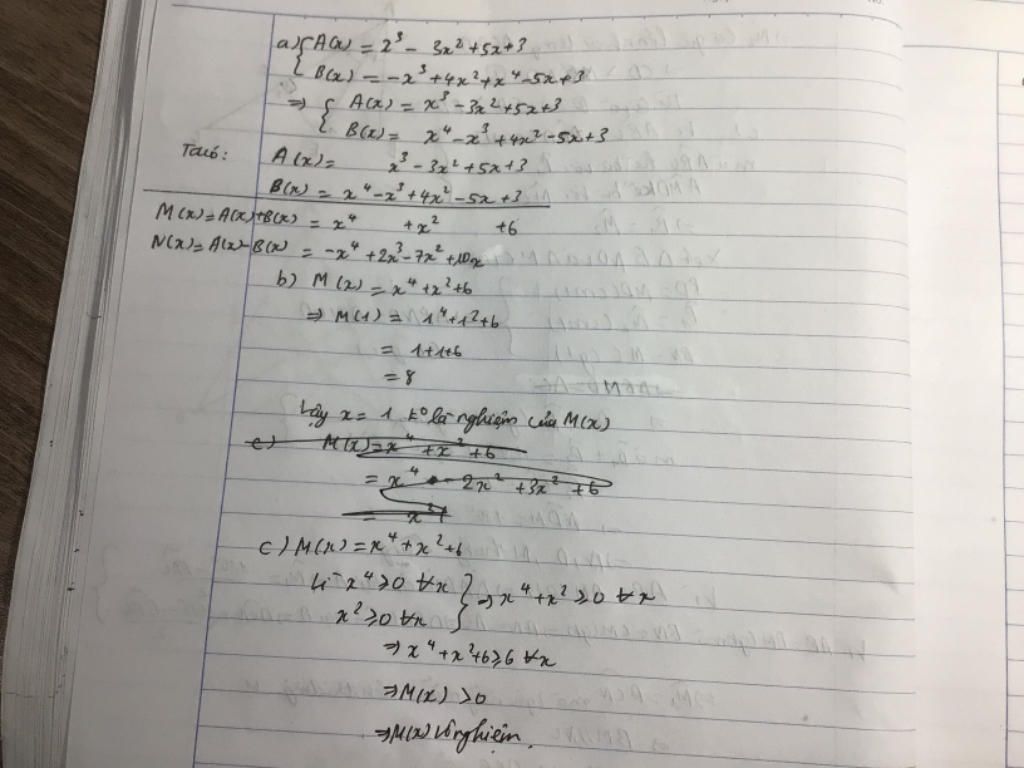 a) { A(x) = 2³ - 3x² + 5x + 3
B(x) = -x³ + 4x² + x⁴ - 5x + 3
⇒ { A(x) = x³ - 3x² + 5x + 3
B(x) = x⁴ - x³ + 4x² - 5x + 3
Ta có: A(x) = x³ - 3x² + 5x + 3
B(x) = x⁴ - x³ + 4x² - 5x + 3
M(x) = A(x) + B(x) = x⁴ + x² + 6
N(x) = A(x) - B(x) = -x⁴ + 2x³ - 7x² + 10x
b) M(x) = x⁴ + x² + 6
⇒ M(1) = 1⁴ + 1² + 6
= 1 + 1 + 6
= 8
Vậy x = 1 k⁰ là nghiệm của M(x)
c) M(x) = x⁴ + x² + 6
= x⁴ - 2x² + 3x² + 6
c) M(x) = x⁴ + x² + 6
Vì x⁴ ≥ 0 ∀x } ⇒ x⁴ + x² ≥ 0 ∀x
x² ≥ 0 ∀x
⇒ x⁴ + x² + 6 ≥ 6 ∀x
⇒ M(x) > 0
⇒ M(x) vô nghiệm.